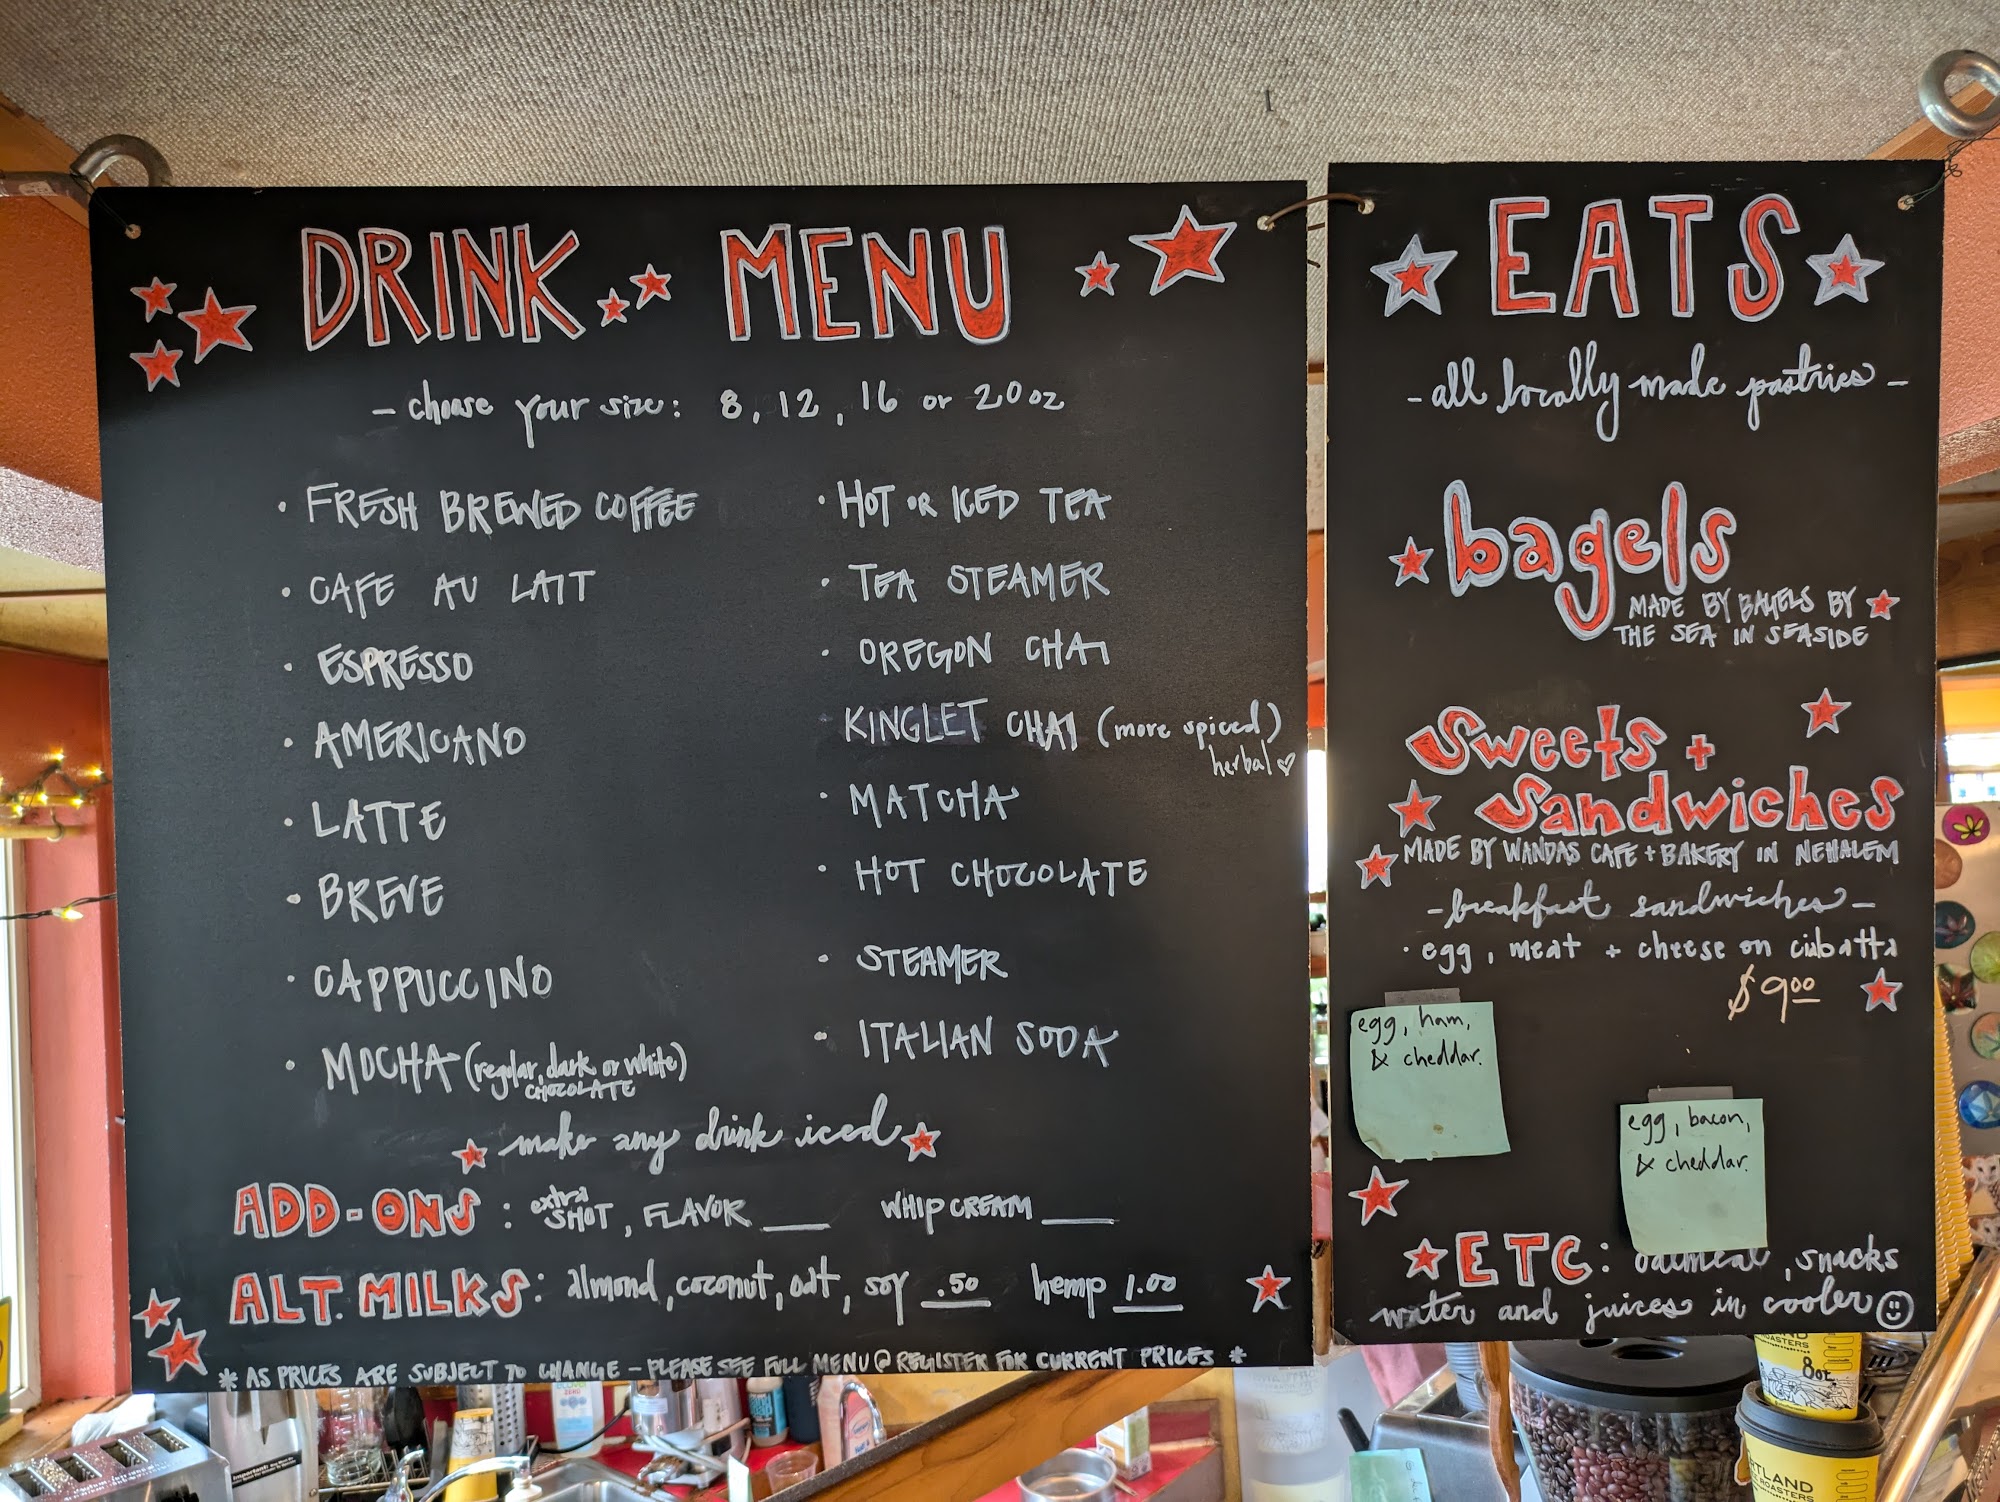 DRINK MENU
- choose your size: 8, 12, 16 or 20 oz
· FRESH BREWED COFFEE
· CAFE AU LAIT
· ESPRESSO
· AMERICANO
· LATTE
· BREVE
· CAPPUCCINO
· MOCHA (regular, dark or white)
CHOCOLATE
· HOT OR ICED TEA
· TEA STEAMER
· OREGON CHAI
· KINGLET CHAI (more spiced)
herbal ♡
· MATCHA
· HOT CHOCOLATE
· STEAMER
· ITALIAN SODA
make any drink iced
ADD-ONS: extra SHOT, FLAVOR ____ WHIP CREAM ____
ALT. MILKS: almond, coconut, oat, soy .50 hemp 1.00
* AS PRICES ARE SUBJECT TO CHANGE - PLEASE SEE FULL MENU @ REGISTER FOR CURRENT PRICES *
EATS
- all locally made pastries -
bagels
MADE BY BAGELS BY
THE SEA IN SEASIDE
Sweets +
Sandwiches
MADE BY WANDAS CAFE + BAKERY IN NEHALEM
- breakfast sandwiches -
· egg, meat + cheese on ciabatta
$9.00
egg, ham,
& cheddar.
egg, bacon,
& cheddar.
ETC: oatmeal, snacks
water and juices in cooler
8oz.
ROASTERS